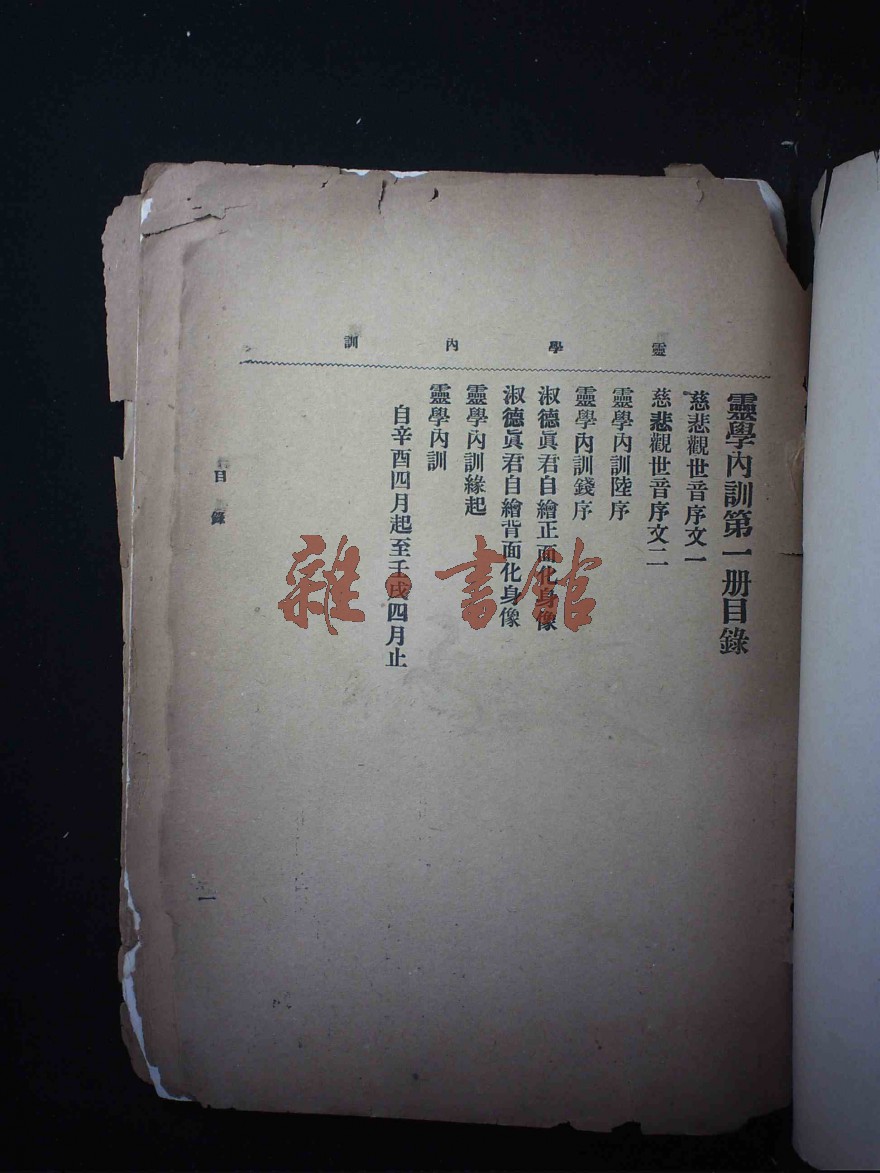 靈學內訓
靈學內訓第一册目錄
慈悲觀世音序文一
慈悲觀世音序文二
靈學內訓陸序
靈學內訓錢序
淑德眞君自繪正面化身像
淑德眞君自繪背面化身像
靈學內訓緣起
靈學內訓
自辛酉四月起至壬戌四月止
目錄
一
雜·書館